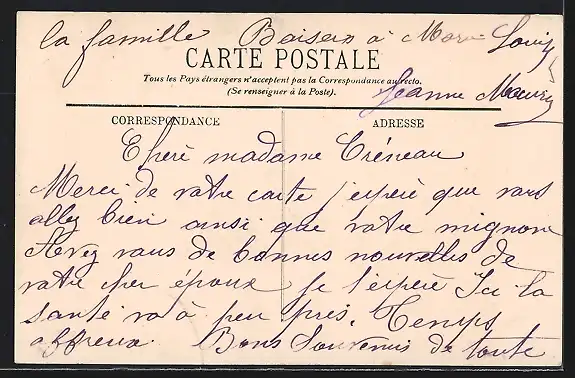 la famille Baisers à Marie Louise
CARTE POSTALE
Tous les Pays étrangers n'acceptent pas la Correspondance au recto.
(Se renseigner à la Poste).
Jeanne
CORRESPONDANCE
ADRESSE
Chère madame Créneau
Merci de votre carte j'espère que vous
allez bien ainsi que votre mignone
Avez vous de bonnes nouvelles de
votre cher époux je l'espère Ici la
santé va à peu près. Temps
affreux. Bons Souvenirs de toute